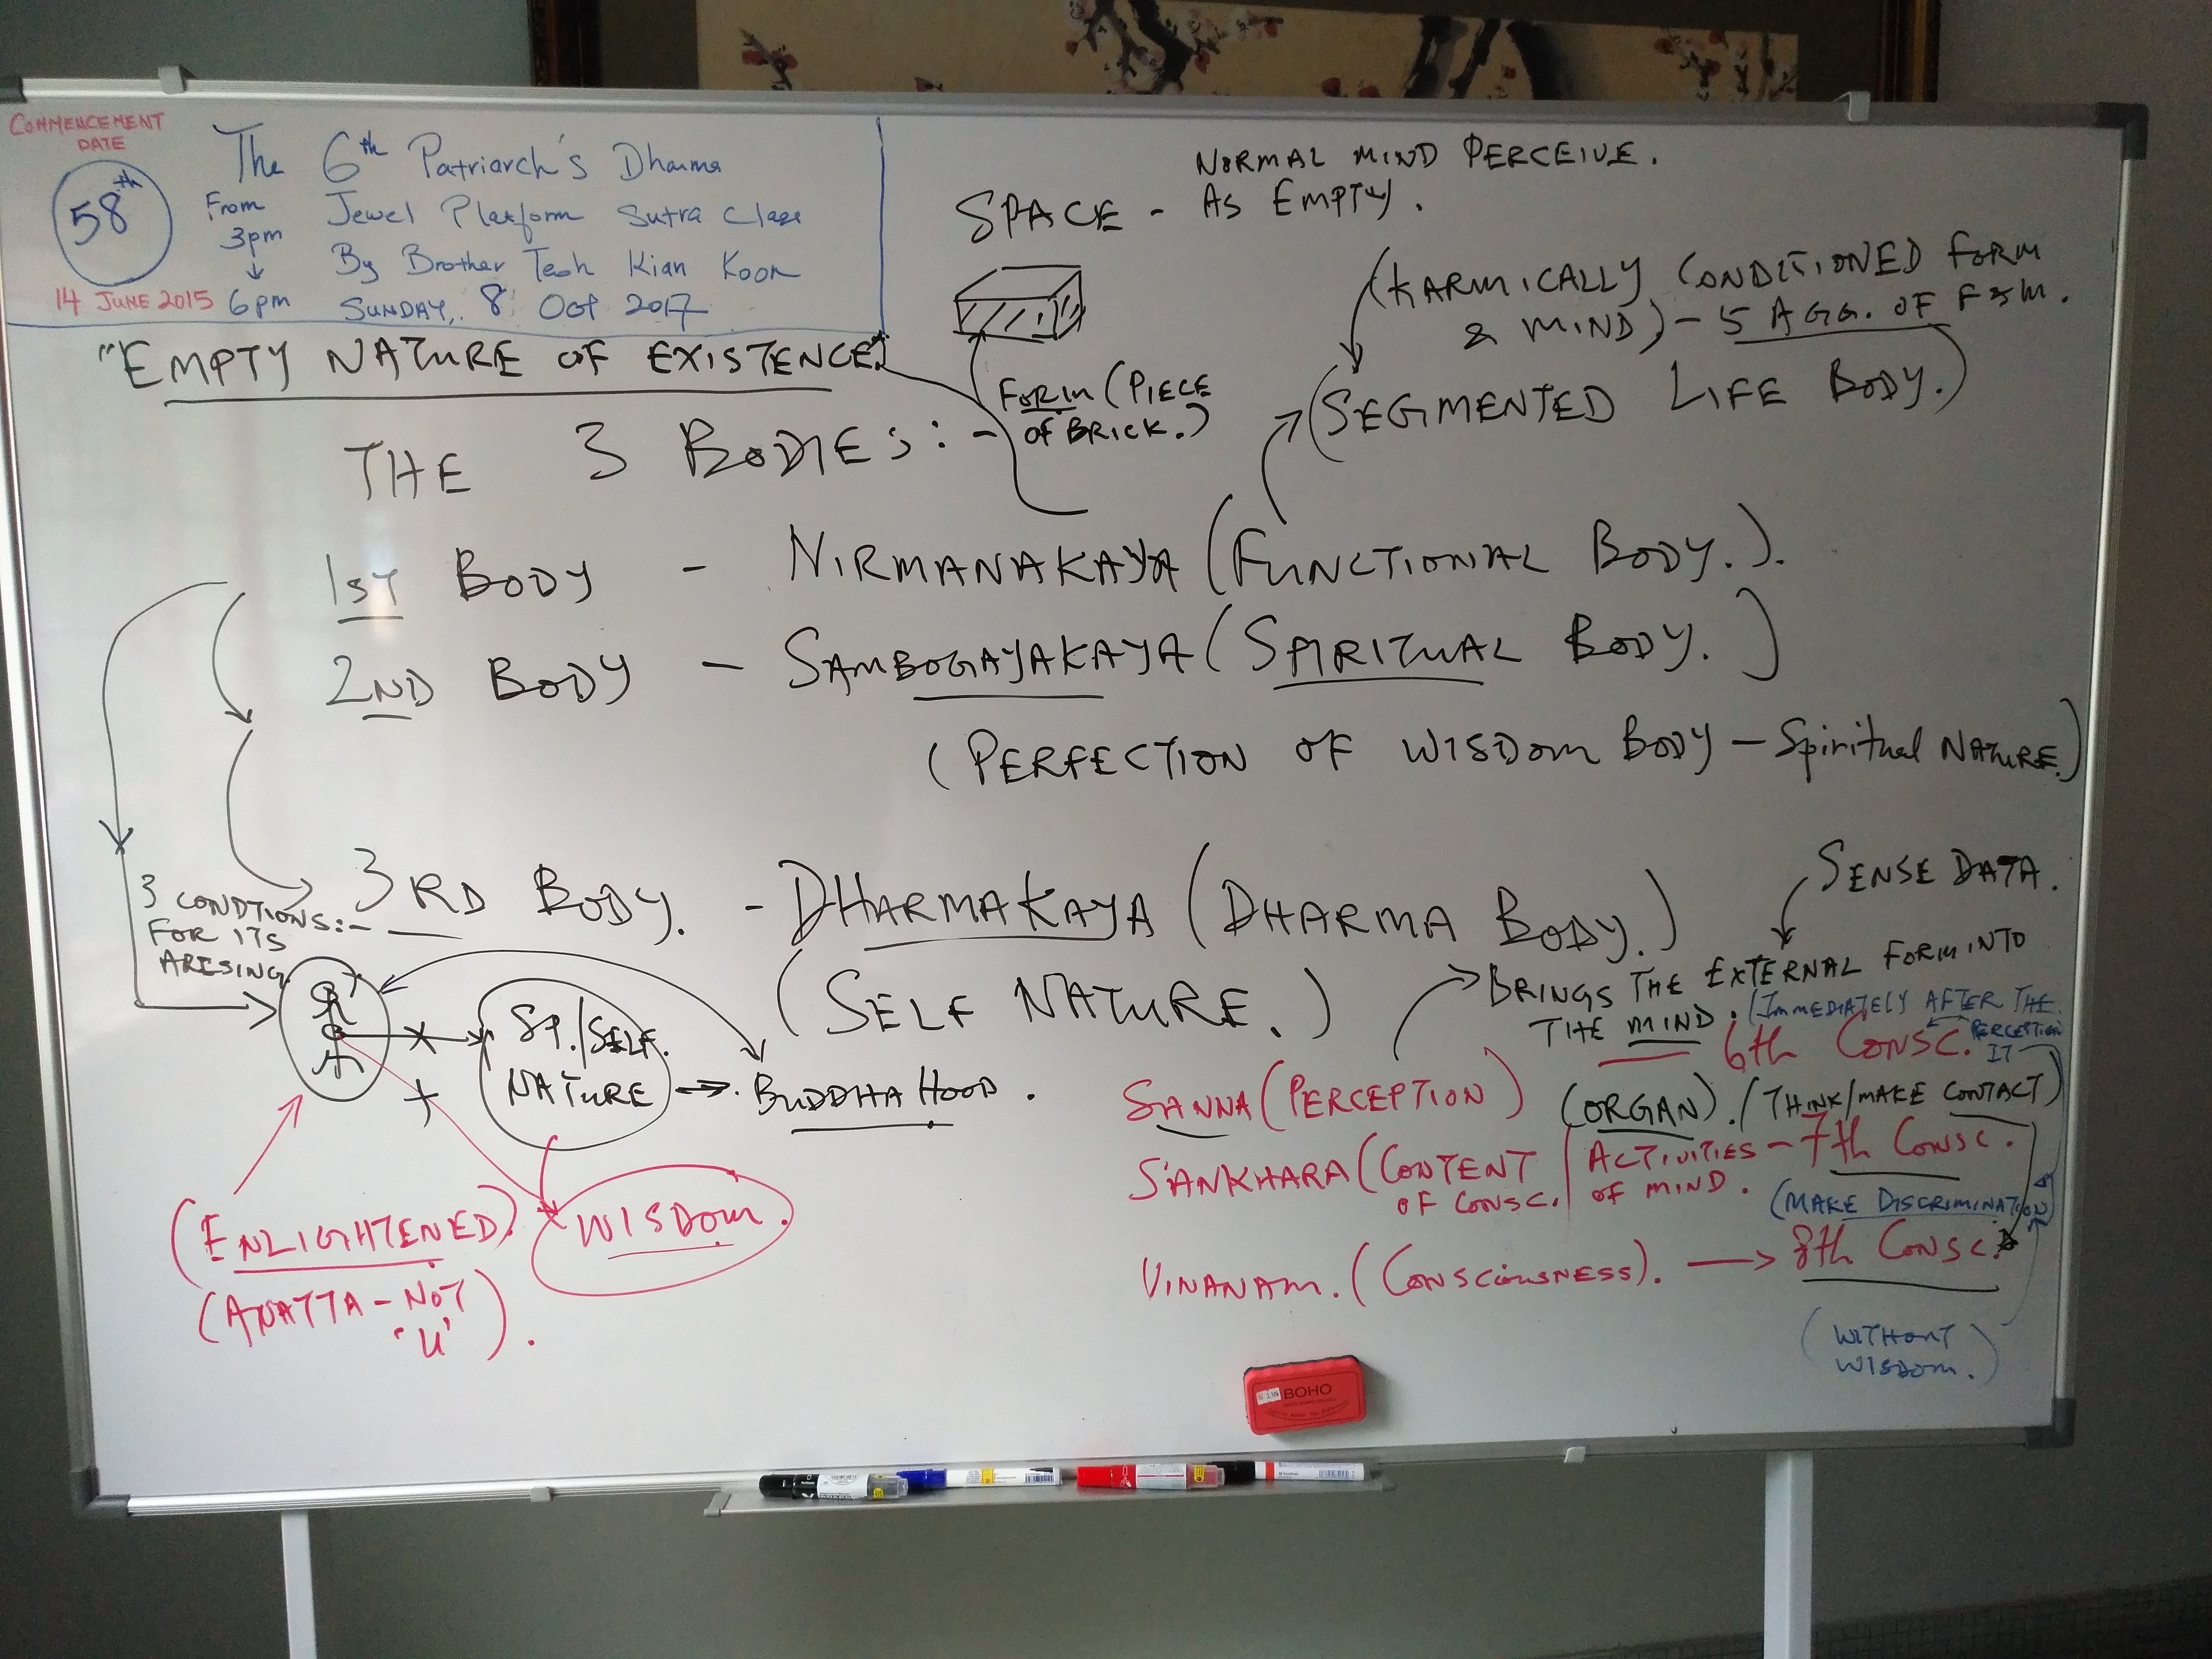 COMMENCEMENT
DATE
58th
14 JUNE 2015
From
3pm
↓
6pm
The 6th Patriarch's Dharma
Jewel Platform Sutra Class
By Brother Teoh Kian Koon
SUNDAY, 8 OCT 2017
"EMPTY NATURE OF EXISTENCE"
NORMAL MIND PERCEIVE.
SPACE - AS EMPTY.
FORM (PIECE
OF BRICK.)
(KARMICALLY CONDITIONED FORM
& MIND) - 5 AGG. OF F & M.
(SEGMENTED LIFE BODY.)
THE 3 BODIES: -
1ST BODY - NIRMANAKAYA (FUNCTIONAL BODY.).
2ND BODY - SAMBOGAYAKAYA (SPIRITUAL BODY.)
(PERFECTION OF WISDOM BODY - Spiritual NATURE.)
3RD BODY. - DHARMAKAYA (DHARMA BODY.)
(SELF NATURE.)
3 CONDTIONS:-
FOR ITS
ARISING.
SP./SELF.
NATURE → BUDDHA HOOD.
(ENLIGHTENED)
(ANATTA - NOT
'U').
WISDOM.
SENSE DATA.
BRINGS THE EXTERNAL FORM INTO
THE MIND. (IMMEDIATELY AFTER THE
PERCEPTION
IT
6th CONSC.
SANNA (PERCEPTION) (ORGAN). (THINK/MAKE CONTACT)
SANKHARA (CONTENT / ACTIVITIES - 7th CONSC.
OF CONSC. / OF MIND.
(MAKE DISCRIMINATION)
VINANAM. (CONSCIOUSNESS). → 8th CONSC.
(WITHOUT
WISDOM.)
BOHO